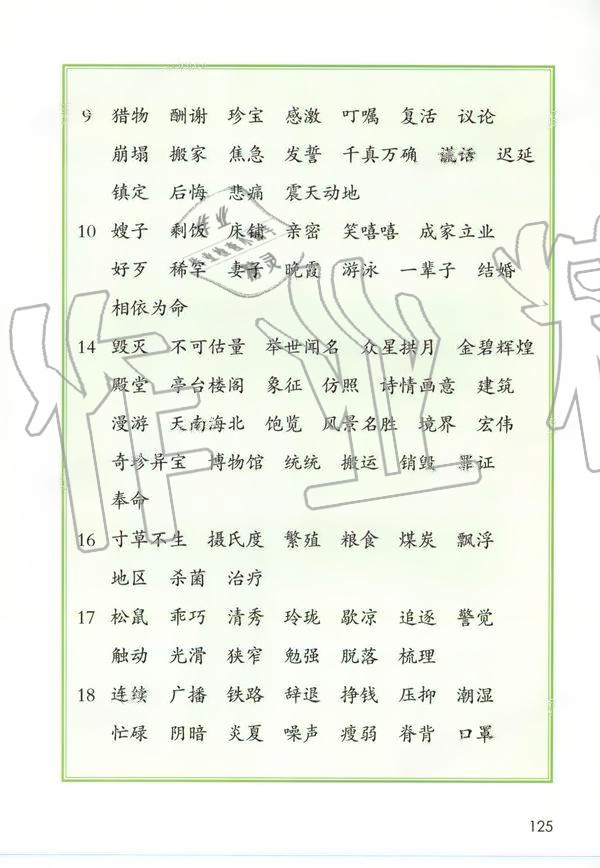 9 猎物 酬谢 珍宝 感激 叮嘱 复活 议论
崩塌 搬家 焦急 发誓 千真万确 谎话 迟延
镇定 后悔 悲痛 震天动地
10 嫂子 剩饭 床铺 亲密 笑嘻嘻 成家立业
好歹 稀罕 妻子 晚霞 游泳 一辈子 结婚
相依为命
14 毁灭 不可估量 举世闻名 众星拱月 金碧辉煌
殿堂 亭台楼阁 象征 仿照 诗情画意 建筑
漫游 天南海北 饱览 风景名胜 境界 宏伟
奇珍异宝 博物馆 统统 搬运 销毁 罪证
奉命
16 寸草不生 摄氏度 繁殖 粮食 煤炭 飘浮
地区 杀菌 治疗
17 松鼠 乖巧 清秀 玲珑 歇凉 追逐 警觉
触动 光滑 狭窄 勉强 脱落 梳理
18 连续 广播 铁路 辞退 挣钱 压抑 潮湿
忙碌 阴暗 炎夏 噪声 瘦弱 脊背 口罩
125